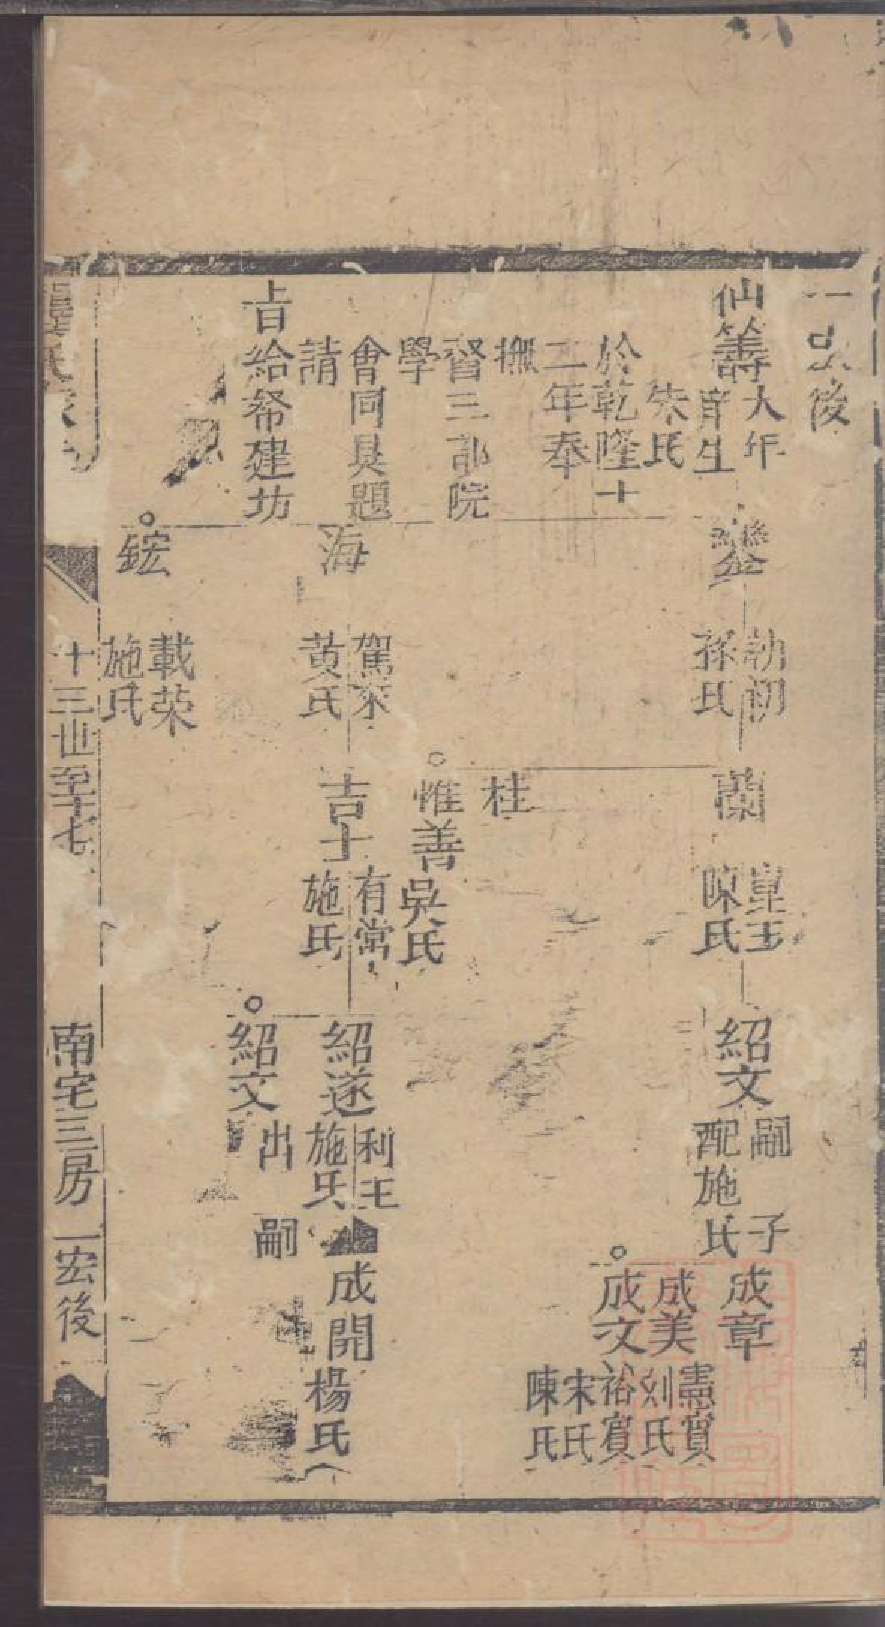 後
仙籌
大年
庠生
朱氏
於乾隆十
二年奉
撫
督三部院
學
會同具題
請
旨給帑建坊
鑾
勑初
孫氏
海
駕來
黃氏
鋐
載荣
施氏
蘭
星玉
陳氏
桂
惟善
吳氏
吉士
有常
施氏
紹文
嗣子
配施氏
紹遂
利王
施氏
紹文
出嗣
成章
成美
憲賓
刘氏
成文
裕賓
宋氏
陳氏
成開
楊氏
十三世至十七
南宅三房一宏後